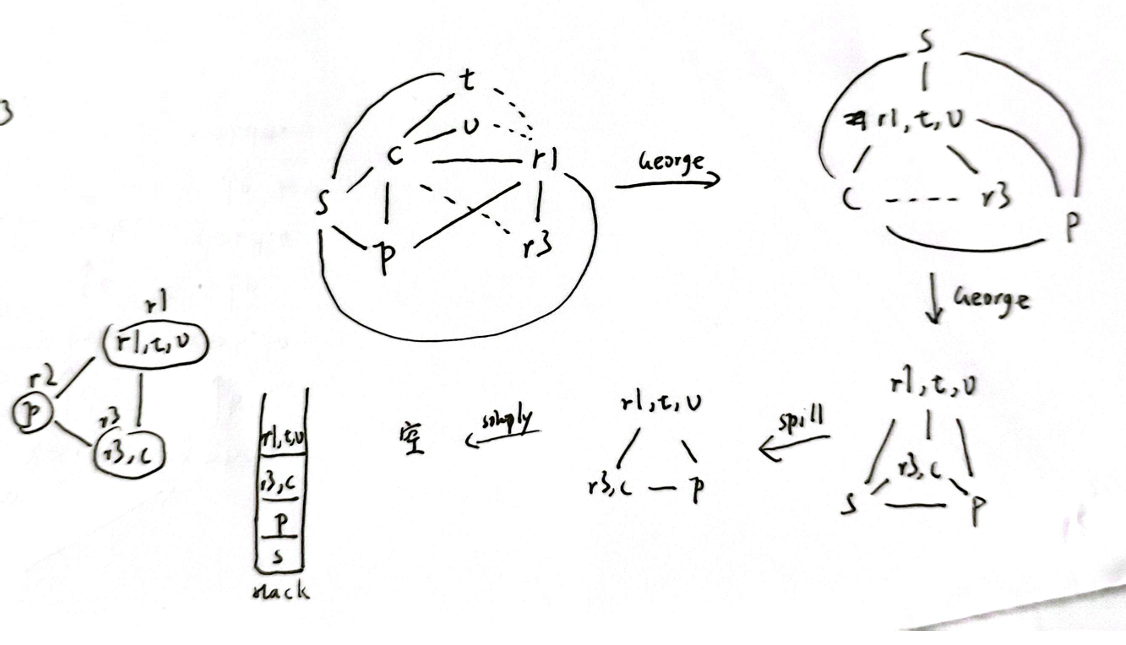 3
t
u
c
r1
s
p
r3
George
s
r1, t, u
c
r3
p
George
r1, t, u
r3, c
s
p
spill
r1, t, u
r3, c
p
simply
空
r1, t, u
r3, c
p
s
stack
r1
r1, t, u
r2
p
r3
r3, c